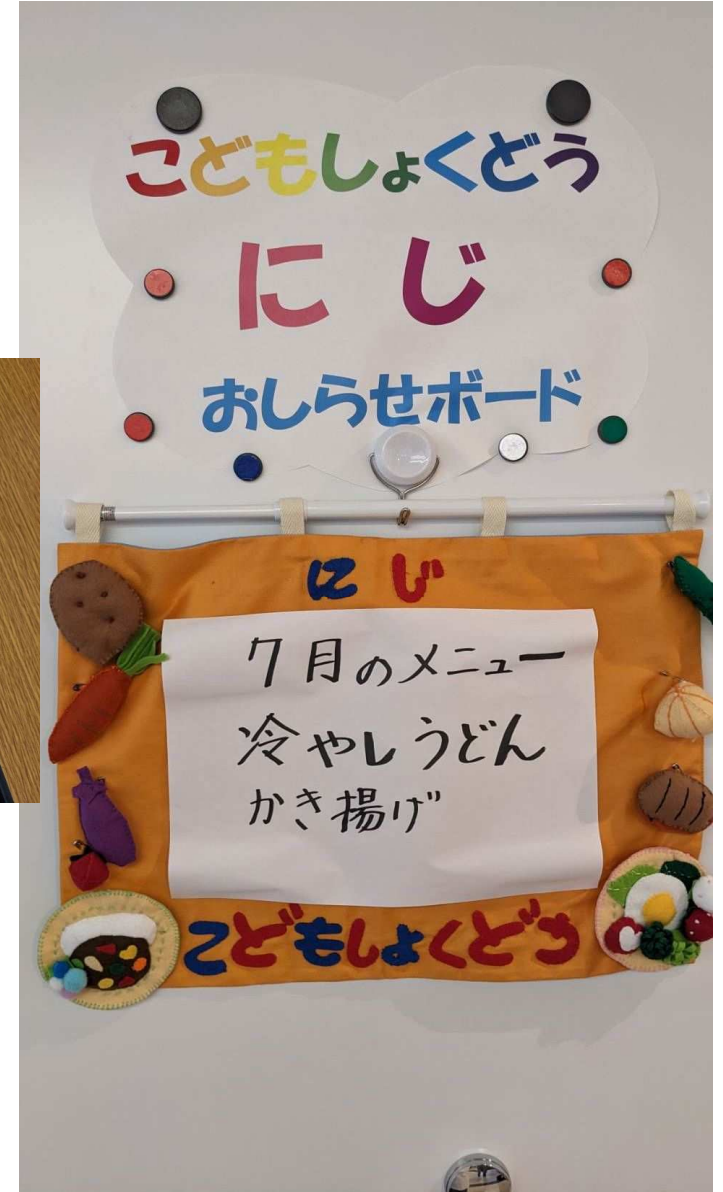 こどもしょくどう
にじ
おしらせボード
にじ
7月のメニュー
冷やしうどん
かき揚げ
こどもしょくどう